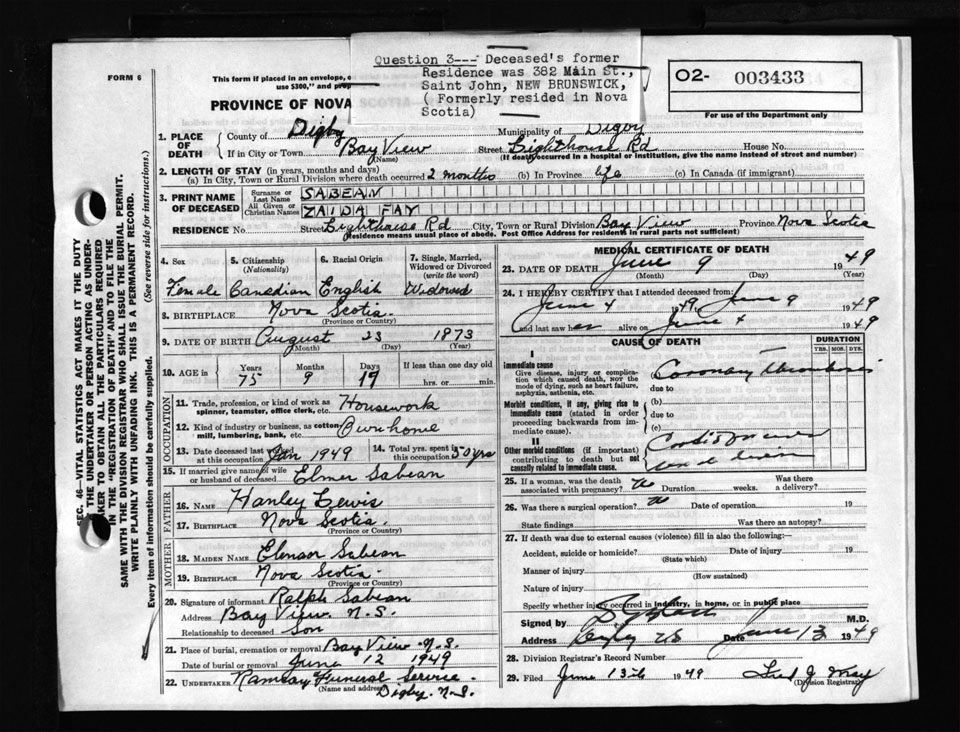 Question 3--- Deceased's former
Residence was 382 Main St.,
Saint John, NEW BRUNSWICK,
( Formerly resided in Nova
Scotia)
FORM 6
This form if placed in an envelope,
use $300," and
PROVINCE OF NOVA
O2- 003433
For use of the Department only
1. PLACE OF DEATH
County of Digby Municipality of Digby
If in City or Town Bay View Street Lighthouse Rd House No.
(Name) (If death occurred in a hospital or institution, give the name instead of street and number)
2. LENGTH OF STAY (in years, months and days)
(a) In City, Town or Rural Division where death occurred 2 months (b) In Province life (c) In Canada (if immigrant)
3. PRINT NAME OF DECEASED
Surname or Last Name SABEAN
All Given or Christian Names ZAIDA FAY
RESIDENCE No. Street Lighthouse Rd City, Town or Rural Division Bay View Province Nova Scotia
(Residence means usual place of abode. Post Office Address for residents in rural parts not sufficient)
4. Sex Female
5. Citizenship (Nationality) Canadian
6. Racial Origin English
7. Single, Married, Widowed or Divorced (write the word) Widowed
8. BIRTHPLACE Nova Scotia
(Province or Country)
9. DATE OF BIRTH August 23 1873
(Month) (Day) (Year)
10. AGE in Years 75 Months 9 Days 17 If less than one day old
hrs. or min.
OCCUPATION
11. Trade, profession or kind of work as spinner, teamster, office clerk, etc. Housework
12. Kind of industry or business, as cotton mill, lumbering, bank, etc. Own home
13. Date deceased last worked at this occupation Jan 1949
14. Total yrs. spent in this occupation 50 yrs
15. If married give name of wife or husband of deceased Elmer Sabean
FATHER
16. NAME Hanley Lewis
17. BIRTHPLACE Nova Scotia
(Province or Country)
MOTHER
18. MAIDEN NAME Elenaor Sabean
19. BIRTHPLACE Nova Scotia
(Province or Country)
20. Signature of informant Ralph Sabean
Address Bay View N.S.
Relationship to deceased Son
21. Place of burial, cremation or removal Bay View N.S.
Date of burial or removal June 12 1949
22. UNDERTAKER Ramsay Funeral Service
(Name and address) Digby. N.S.
MEDICAL CERTIFICATE OF DEATH
23. DATE OF DEATH June 9 1949
(Month) (Day) (Year)
24. I HEREBY CERTIFY that I attended deceased from:
June 4 1949, June 9 1949
and last saw her alive on June 4 1949
CAUSE OF DEATH
DURATION
YRS. MOS. DYS.
I
Immediate cause
Give disease, injury or complication which caused death, NOT the mode of dying, such as heart failure, asphyxia, asthenia, etc.
Coronary thrombosis
due to
Morbid conditions, if any, giving rise to immediate cause (stated in order proceeding backwards from immediate cause).
(b)
due to
(c)
II
Other morbid conditions (if important) contributing to death but not causally related to immediate cause.
25. If a woman, was the death associated with pregnancy? No Duration weeks. Was there a delivery?
26. Was there a surgical operation? No Date of operation 19
State findings Was there an autopsy?
27. If death was due to external causes (violence) fill in also the following:—
Accident, suicide or homicide? Date of injury 19
(State which)
Manner of injury
(How sustained)
Nature of injury
Specify whether injury occurred in industry, in home, or in public place
Signed by M.D.
Address Date June 13 1949
28. Division Registrar's Record Number
29. Filed June 13th 1949 Fred J. May
(Division Registrar)
SEC. 46—VITAL STATISTICS ACT MAKES IT THE DUTY
THE UNDERTAKER OR PERSON ACTING AS UNDER-
TAKER TO OBTAIN ALL THE PARTICULARS REQUIRED
IN THE "REGISTRATION OF DEATH" AND TO FILE THE
SAME WITH THE DIVISION REGISTRAR WHO SHALL ISSUE THE BURIAL PERMIT.
WRITE PLAINLY WITH UNFADING INK. THIS IS A PERMANENT RECORD.
Every item of information should be carefully supplied. (See reverse side for instructions.)